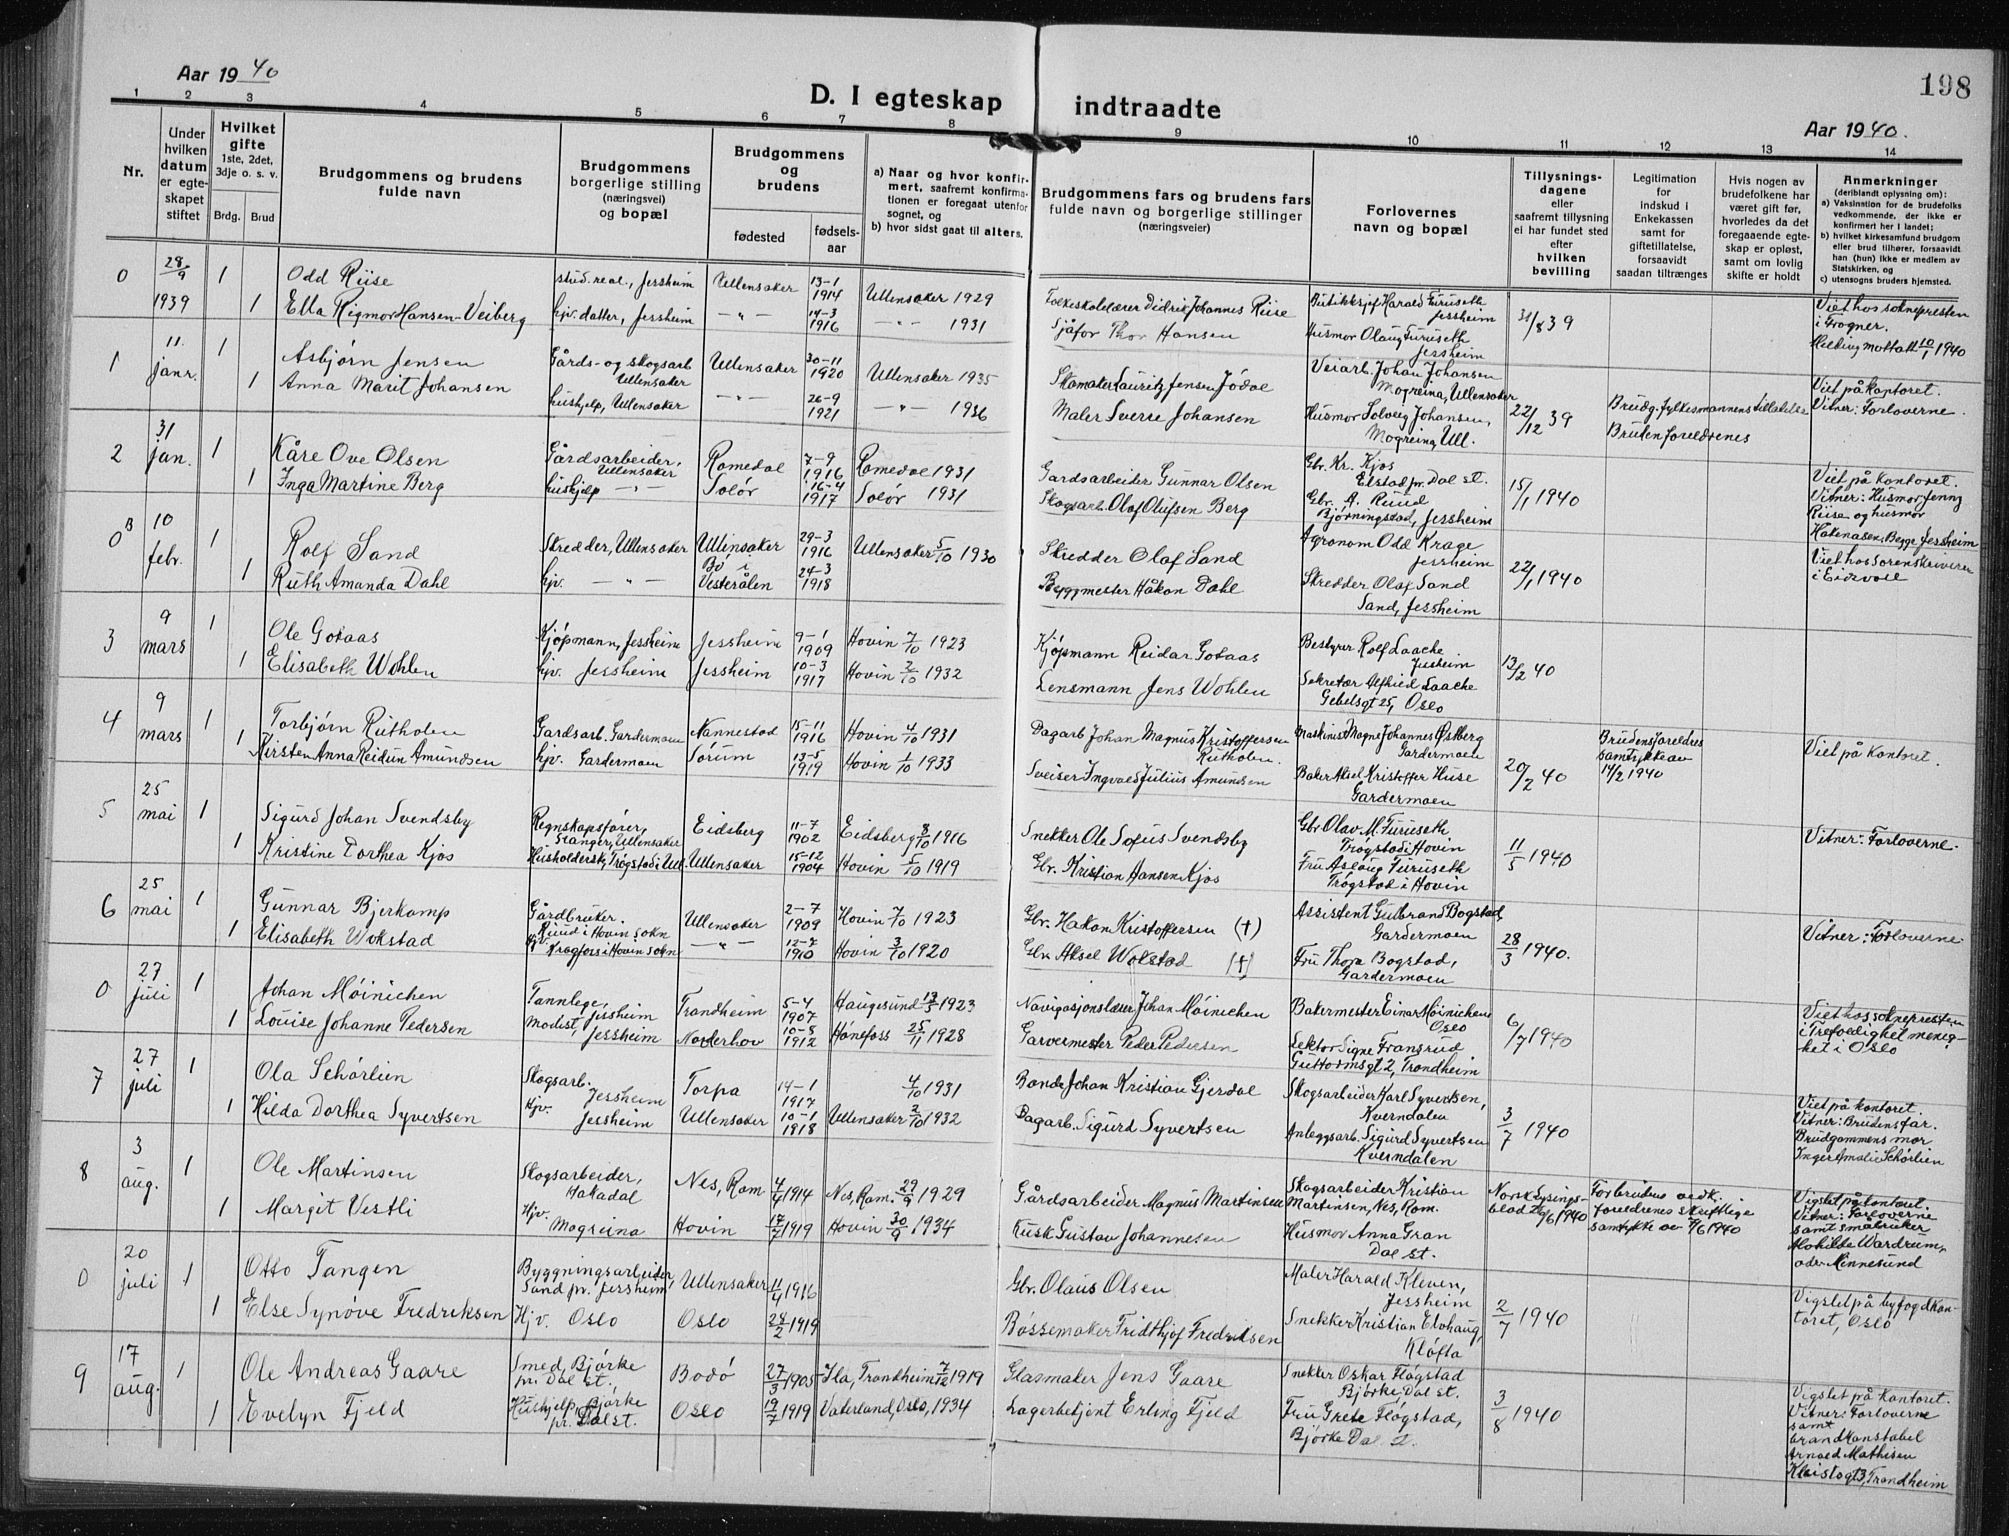 Aar 1940
198
D. I egteskap indtraadte
Aar 1940.
1 2 3 4 5 6 7 8 9 10 11 12 13 14
Nr.
Under
hvilken
datum
er egte-
skapet
stiftet
Hvilket
gifte
1ste, 2det,
3dje o. s. v.
Brdg. Brud
Brudgommens og brudens
fulde navn
Brudgommens
borgerlige stilling
(næringsvei)
og bopæl
Brudgommens
og
brudens
fødested
fødsels-
aar
a) Naar og hvor konfir-
mert, saafremt konfirma-
tionen er foregaat utenfor
sognet, og
b) hvor sidst gaat til alters.
Brudgommens fars og brudens fars
fulde navn og borgerlige stillinger
(næringsveier)
Forlovernes
navn og bopæl
Tillysnings-
dagene
eller
saafremt tillysning
ei har fundet sted
efter
hvilken
bevilling
Legitimation
for
indskud i
Enkekassen
samt for
giftetillatelse,
forsaavidt
saadan tiltrænges
Hvis nogen av
brudefolkene har
været gift før,
hvorledes da det
foregaaende egte-
skap er opløst,
samt om lovlig
skifte er holdt
Anmerkninger
(deriblandt oplysning om):
a) Vaksination for de brudefolks
vedkommende, der ikke er
konfirmert her i landet;
b) hvilket kirkesamfund brudgom
eller brud tilhører, forsaavidt
han (hun) ikke er medlem av
Statskirken, og
c) utensogns bruders hjemsted.
0 28/9 1939 1 Odd Riise stud. real., Jessheim Ullensaker 13-1 1914 Ullensaker 1929 Folkeskolelærer Didrik Johannes Riise Butikksjef Harald Furuseth Jessheim 31/8 39 Viet hos sokneprest en
i Frogner.
1 Ella Rigmor Hansen-Veiberg hjv. datter, Jessheim -"- 14-3 1916 -"- 1931 Sjåfør Thor Hansen Husmor Olaug Furuseth Jessheim Melding mottatt 10/1 1940
1 11. janr. 1 Asbjørn Jensen Gårds- og skogsarb Ullensaker Ullensaker 30-11 1920 Ullensaker 1935 Skomaker Lauritz Jensen Jódal Veiarb. Johan Johansen Mogreina, Ullensaker 22/12 39 Brudg. fylkesmannens tillatelse Viet på kontoret.
1 Anna Marit Johansen hushjelp, Ullensaker -"- 26-9 1921 -"- 1936 Maler Sverre Johansen Husmor Solveig Johansen, Mogreina, Ull. Bruden foreldrenes Vitner: Forloverne.
2 31 jan. 1 Kåre Ove Olsen Gårdsarbeider, Ullensaker Romedal 7-9 1916 Romedal 1931 Gardsarbeider Gunnar Olsen Gbr. Kr. Kjos Elstad pr. Dal st. 15/1 1940 Viet på kontoret.
1 Inga Martine Berg hushjelp -"- Solør 16-4 1917 Solør 1931 Skogsarb. Olaf Olufsen Berg Gbr. A. Ruud Bjørningstad, Jessheim Vitner: Husmor Jenny
Riise og husmor
Hakenasen, Begge Jessheim
0 B 10 febr. 1 Rolf Sand Skredder, Ullensaker Ullensaker 29-3 1916 Ullensaker 5/10 1930 Skredder Olaf Sand Agronom Odd Krage Jessheim 22/1 1940 Viet hos sorenskriveren
i Eidsvoll
1 Ruth Amanda Dahl hjv. -"- Bø i Vesterålen 24-3 1918 Byggmester Håkon Dahl Skredder Olaf Sand Sand, Jessheim
3 9 mars 1 Ole Gotaas Kjøpmann, Jessheim Jessheim 9-1 1909 Hovin 7/10 1923 Kjøpmann Reidar Gotaas Bestyrer Rolf Laache Jessheim 13/2 40
1 Elisabeth Wohlen hjv. Jessheim Jessheim 10-3 1917 Hovin 2/10 1932 Lensmann Jens Wohlen Sekretær Alfhild Laache Gebelsgt 25, Oslo
4 9 mars 1 Torbjørn Rutholen Gardsarb. Gardermoen Nannestad 15-11 1916 Hovin 4/10 1931 Dagarb Johan Magnus Kristoffersen Rutholen. Maskinist Magne Johannes Østberg Gardermoen 20/2 40 Brudens foreldres
samtykke av
14/2 1940 Viet på kontoret.
1 Kirsten Anna Reidun Amundsen hjv. Gardermoen Sørum 13-5 1919 Hovin 1/10 1933 Sveiser Ingvald Julius Amundsen Baker Aksel Kristoffer Huse Gardermoen
5 25 mai 1 Sigurd Johan Svendsby Regnskapsfører, Stanger, Ullensaker Eidsberg 11-7 1902 Eidsberg 8/10 1916 Snekker Ole Sofus Svendsby Gbr. Olav M. Furuseth Trøgstad i Hovin 11/5 1940 Vitner: Forloverne.
1 Kristine Dorthea Kjos Husholdersk, Trøgstad i Ull. Ullensaker 15-12 1904 Hovin 5/10 1919 Gbr. Kristian Hansen Kjos Fru Aslaug Furuseth Trøgstad i Hovin
6 25 mai 1 Gunnar Bjerkamp Gårdbruker. Ruud i Hovin sokn Ullensaker 2-7 1909 Hovin 7/10 1923 Gbr. Hakon Kristoffersen (†) Assistent Gulbrand Bogstad Gardermoen 28/3 1940. Vitner: Forloverne
1 Elisabeth Wolstad hjv. Kragfoss i Hovin sokn -"- 12-7 1910 Hovin 3/10 1920 Gbr. Aksel Wolstad (†) Fru Thora Bogstad, Gardermoen
0 27 juli 1 Johan Móinichen Tannlege, Jessheim Trondheim 5-4 1907 Haugesund 13/5 1923 Navigasjonslærer Johan Móinichen Bakermester Einar Móinichen Oslo 6/7 1940 Viet hos sokneprest en
i Trefoldighet menig-
het i Oslo
1 Louise Johanne Pedersen Modist, Jessheim Norderhov 10-8 1912 Hønefoss 25/11 1928 Garvermester Peder Pedersen Lektor Signe Fransrud Guttormsgt 2, Trondheim
7 27 juli 1 Ola Schørlien Skogsarb. Jessheim Torpa 14-1 1917 4/10 1931 Bonde Johan Kristian Gjerdal Skogsarbeider Karl Syvertsen, Kverndalen 3/7 1940 Viet på kontoret.
1 Hilda Dorthea Syvertsen Hjv. Jessheim Ullensaker 10-1 1918 Ullensaker 2/10 1932 Dagarb. Sigurd Syvertsen Anleggsarb. Sigurd Syvertsen Kverndalen Vitner: Brudens far.
Brudgommens mor
Inger Amalie Schørlien
8 3 aug. 1 Ole Martinsen Skogsarbeider, Hakadal Nes, Rom 4/4 1914 Nes, Rom. 29/9 1929 Gårdsarbeider Magnus Martinsen Skogsarbeider Kristian Martinsen, Nes, Rom. Norsk Lysings-
blad /6 1940 For bruden vedk.
foreldrenes skriftlige
samtykke av 7/6 1940 Vigslet på kontoret.
1 Margit Vestli Hjv. Mogreina Hovin 17/7 1919 Hovin 30/9 1934 Kusk Gustav Johannesen Husmor Anna Gran Dal st. Vitner: Forloverne
samt småbruker
Mathilde Wardrum,
ader Minnesund
0 20 juli 1 Otto Tangen Byggningsarbeider, Sand pr. Jessheim Ullensaker 11/4 1916 Gbr. Olaus Olsen Maler Harald Kleven, Jessheim 2/7 1940 Vigslet på byfogdkon-
toret, Oslo
1 Else Synøve Fredriksen Hjv. Oslo Oslo 28/2 1919 Bøssemaker Fridthjof Fredriksen Snekker Kristian Elvhaug, Kløfta
9 17 aug. 1 Ole Andreas Gaare Smed, Bjørke pr. Dal st. Bodó 27/3 1905 Ila, Trondheim 7/12 1919 Glasmaker Jens Gaare Snekker Oskar Fløgstad Bjørke, Dal st. 3/8 1940 Vigslet på kontoret.
1 Evelyn Fjeld Hushjelp, Bjørke pr. Dal st. Oslo 19/7 1919 Vaterland, Oslo, 1934 Lagerbetjent Erling Fjeld Fru Grete Fløgstad, Bjørke Dal st. Vitner: Forloverne
samt
brandkonstabel
Arnold Mathisen
Kleistsgt 3, Trondheim